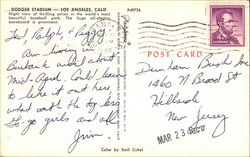 DODGER STADIUM — LOS ANGELES, CALIF.
Night view of thrilling action in the world's most
beautiful baseball park. The huge all-electric
scoreboard is prominent.
P49776
Ted, Ralph, & Peggy
Am living in
Burbank until about
Mid-April. Could learn
to like it out here
what with the
go girls and all
Jim
POST CARD
Denham Bush Inc
1460 N Broad St
Hillside
New Jersey
MAR 23
Color by Emil Cuhel